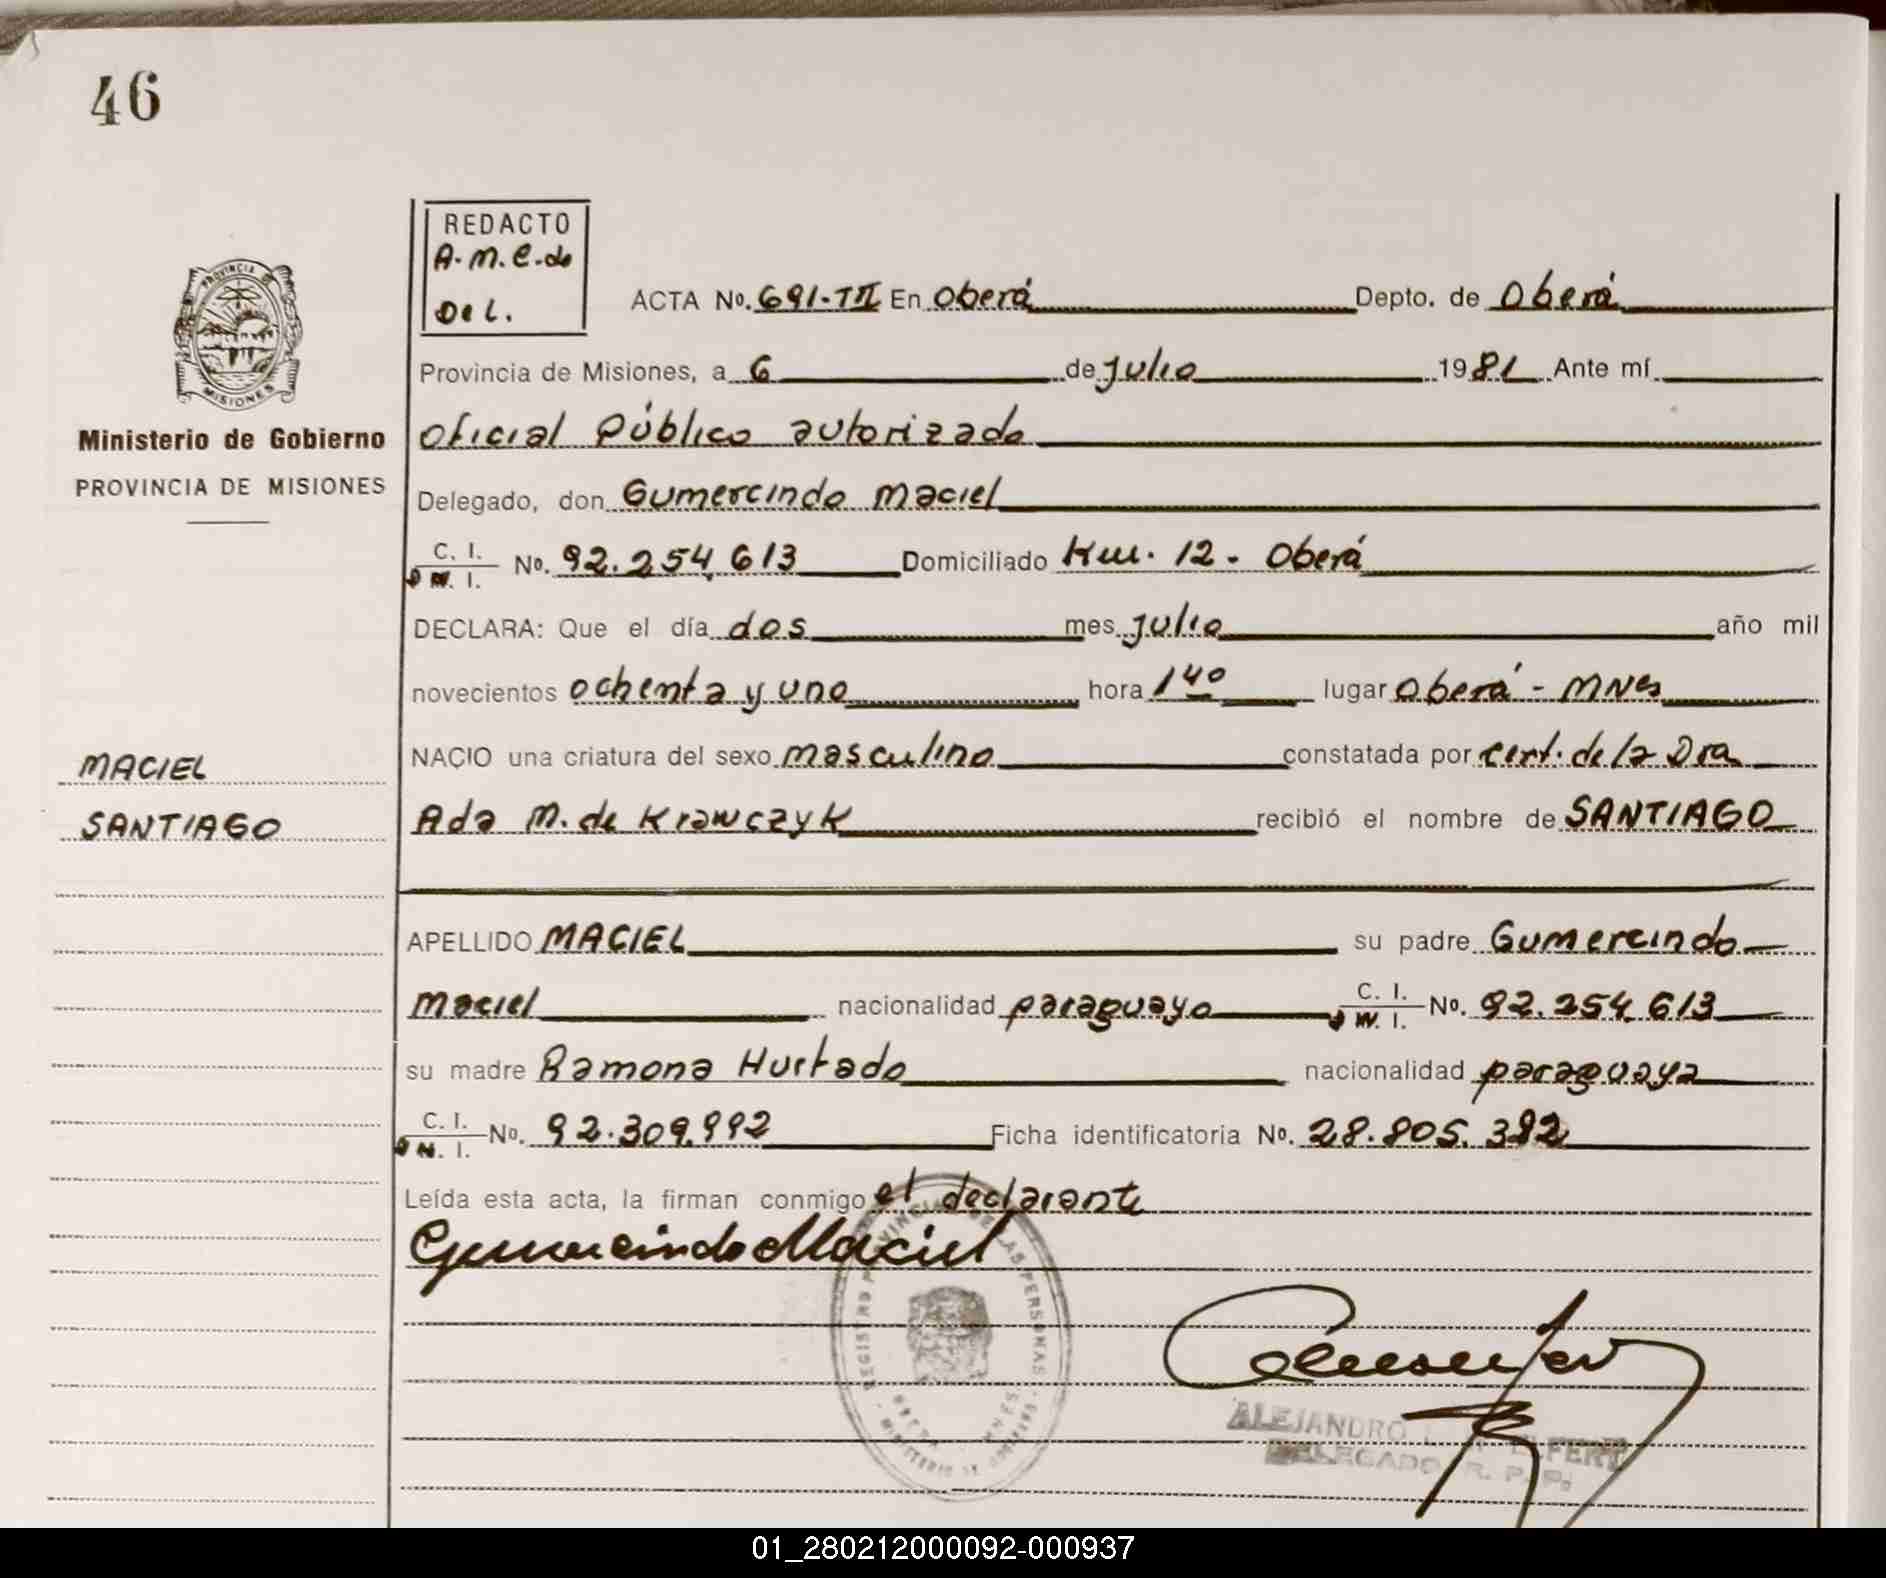 46
REDACTO
A.M.C.do
De L.
ACTA No. 691-TII En Oberá Depto. de Oberá
PROVINCIA DE
MISIONES
Provincia de Misiones, a 6 de Julio 1981 Ante mí
Ministerio de Gobierno
Oficial Público autorizado
PROVINCIA DE MISIONES
Delegado, don Gumercindo Maciel
C. I. No. 92.254.613 Domiciliado Km. 12 - Oberá
D N. I.
DECLARA: Que el día dos mes Julio año mil
novecientos ochenta y uno hora 14º lugar Oberá - MNes
MACIEL
NACIO una criatura del sexo masculino constatada por cert. de la Dra
SANTIAGO
Ada M. de Krawczyk recibió el nombre de SANTIAGO
APELLIDO MACIEL su padre Gumercindo
Maciel nacionalidad paraguayo C. I. No. 92.254.613
D N. I.
su madre Ramona Hurtado nacionalidad paraguaya
C. I. No. 92.309.992 Ficha identificatoria No. 28.805.382
D N. I.
Leída esta acta, la firman conmigo el declarante
Gumercindo Maciel
REGISTRO PROVINCIAL DE LAS PERSONAS
OBERA MNES
MINISTERIO DE GOBIERNO
ALEJANDRO
DELEGADO R. P. P.
01_280212000092-000937